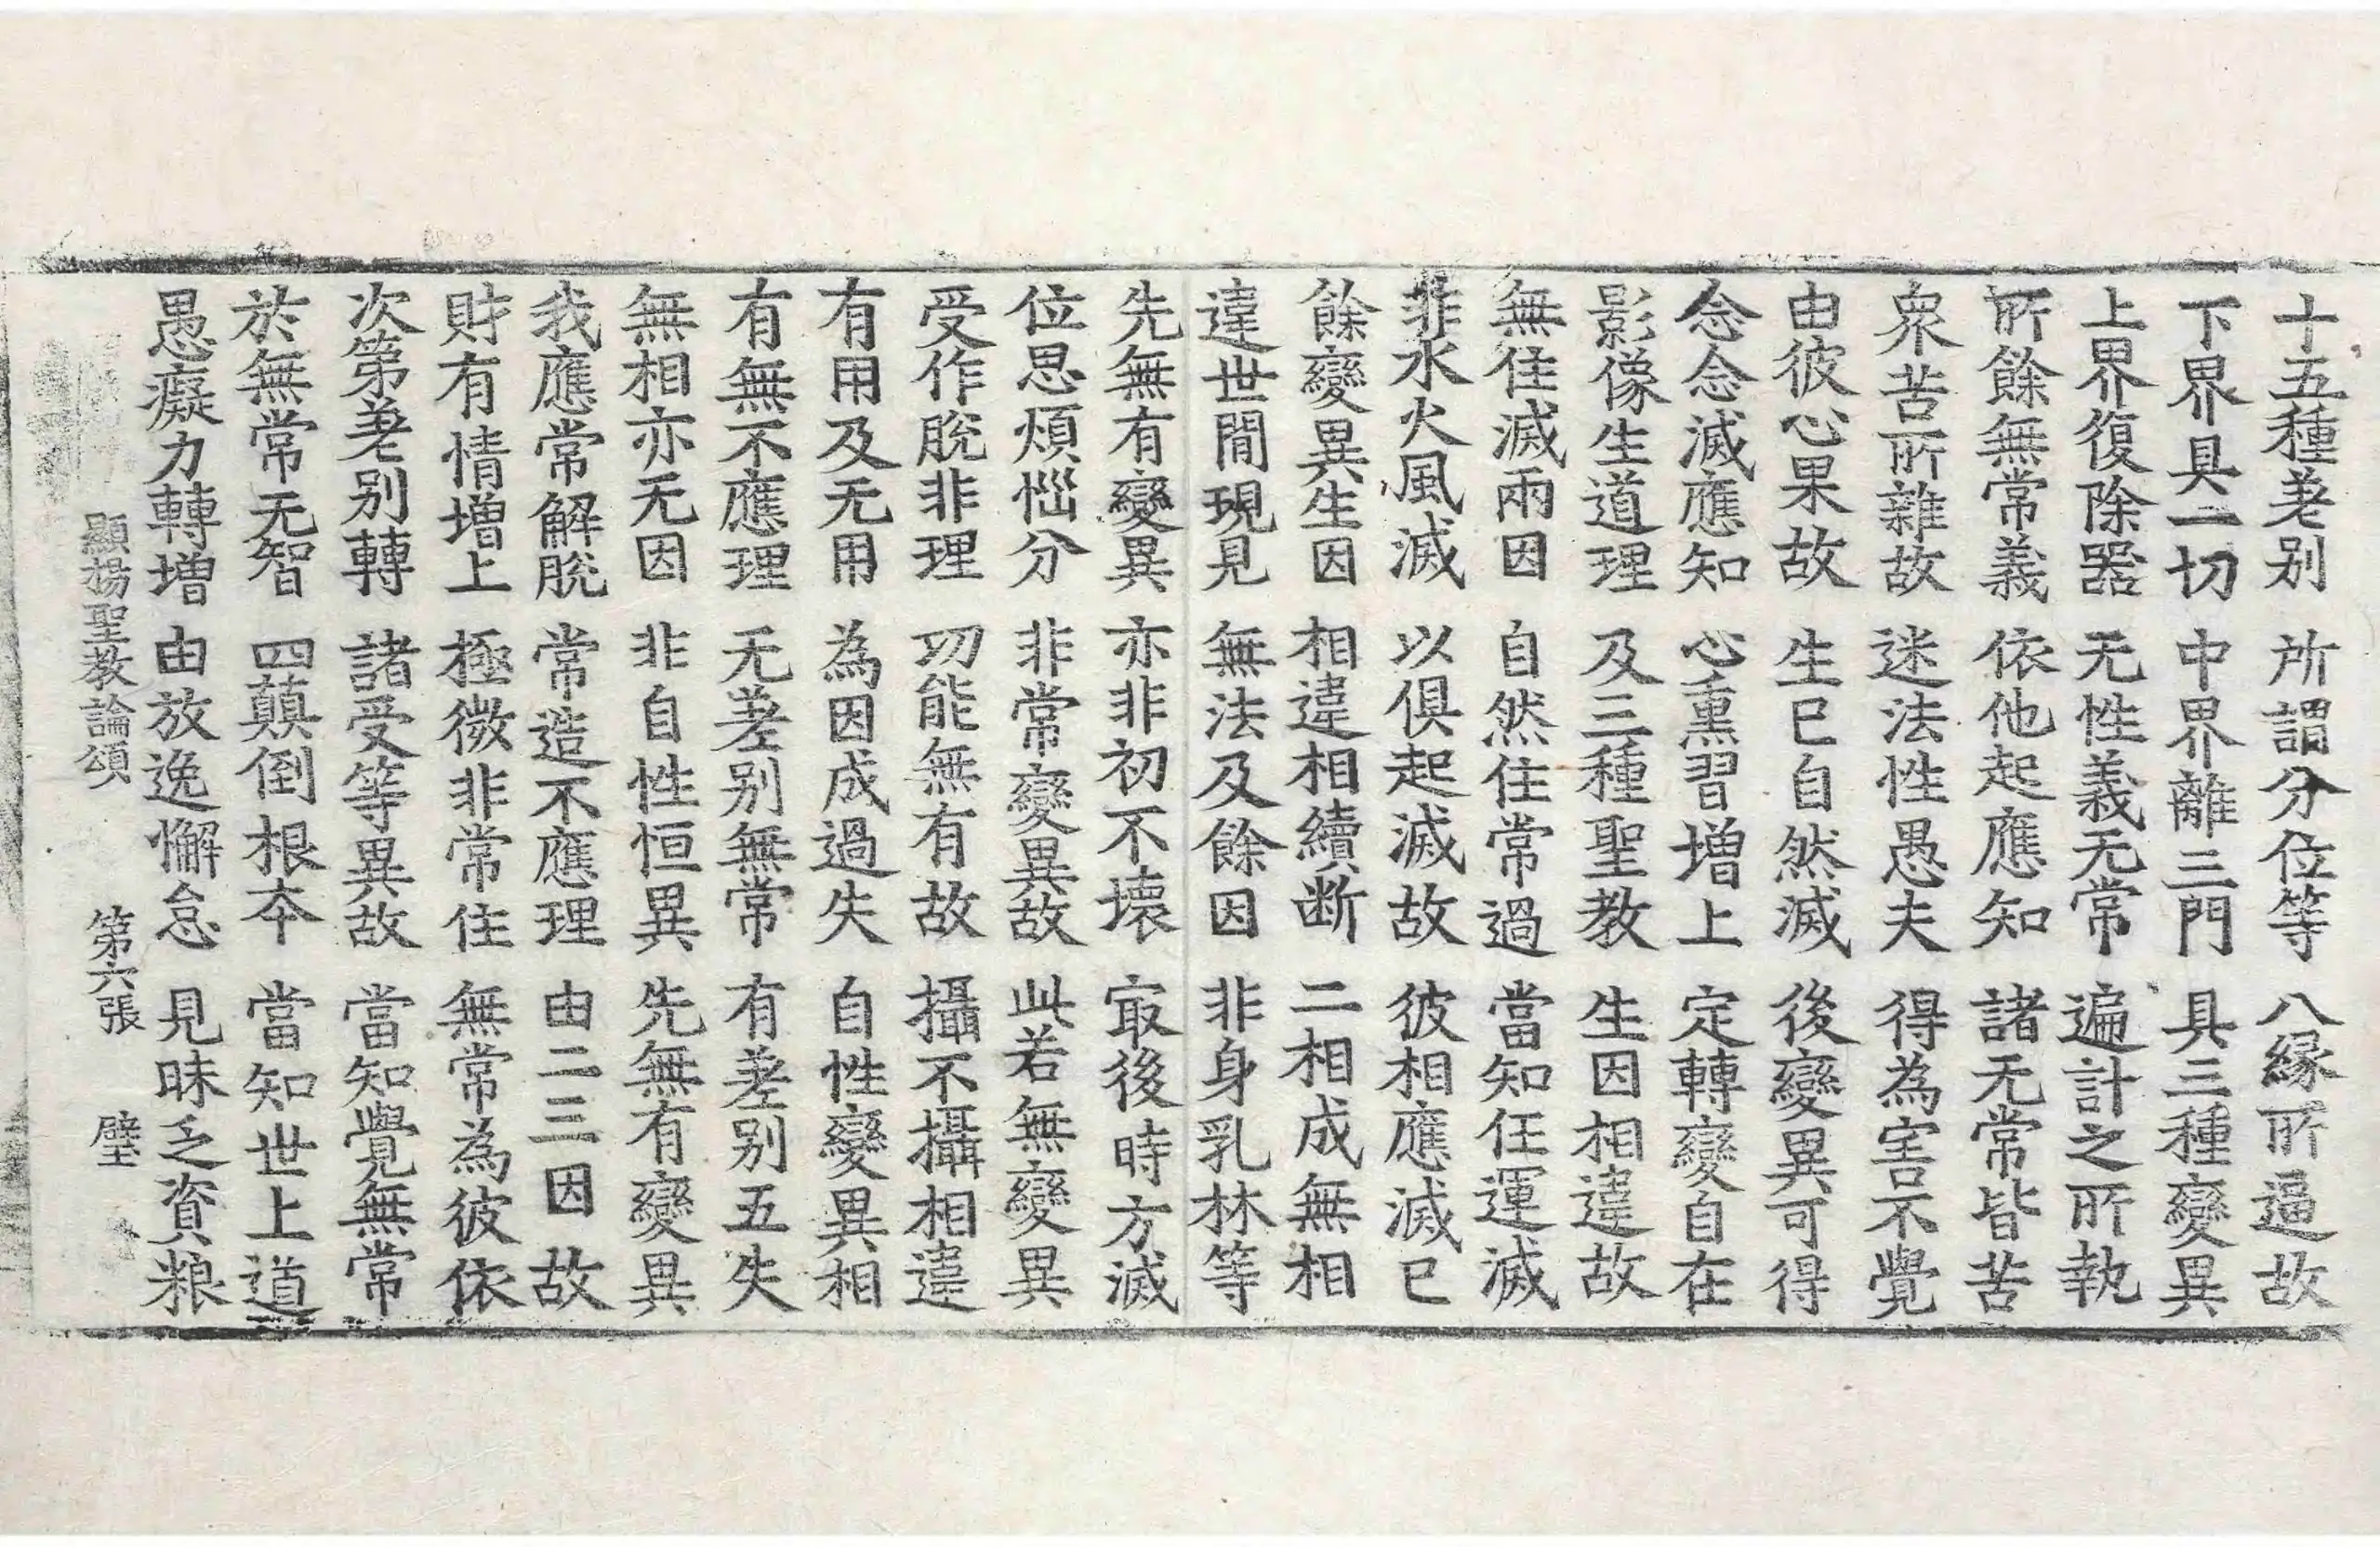 十五種差別　所謂分位等　八縁所逼故
下界具一切　中界離三門　具三種變異
上界復除器　无性義无常　遍計之所執
所餘無常義　依他起應知　諸无常皆苦
衆苦所雜故　迷法性愚夫　得為害不覺
由彼心果故　生已自然滅　後變異可得
念念滅應知　心熏習增上　定轉變自在
影像生道理　及三種聖教　生因相違故
無住滅兩因　自然住常過　當知任運滅
非水火風滅　以俱起滅故　彼相應滅已
餘變異生因　相違相續断　二相成無相
違世間現見　無法及餘因　非身乳林等
先無有變異　亦非初不壞　㝡後時方滅
位思煩惱分　非常變異故　此若無變異
受作脫非理　功能無有故　攝不攝相違
有用及无用　為因成過失　自性變異相
有無不應理　无差別無常　有差別五失
無相亦无因　非自性恒異　先無有變異
我應常解脫　常造不應理　由二三因故
財有情增上　極微非常住　無常為彼依
次第差別轉　諸受等異故　當知覺無常
於無常无智　四顛倒根本　當知世上道
愚癡力轉增　由放逸懈怠　見昧乏資粮
顯揚聖教論頌　第六張　璧